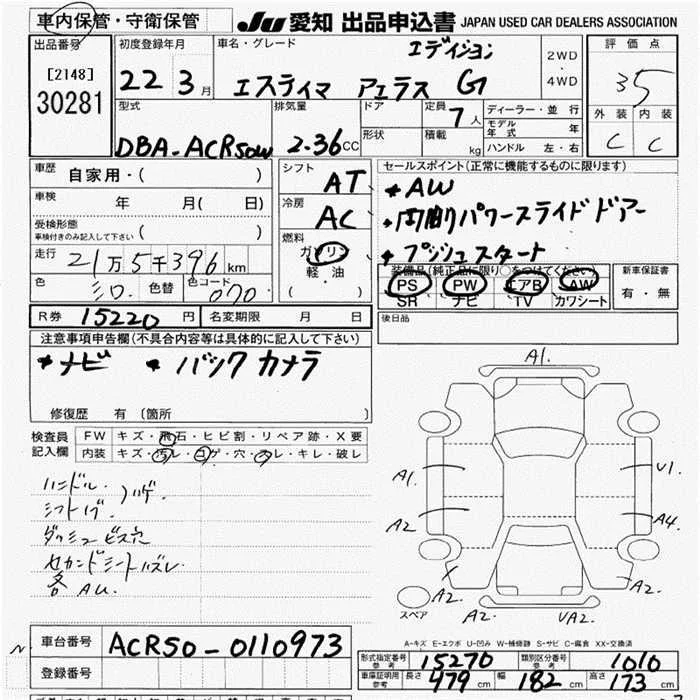 車内保管・守衛保管
JU 愛知 出品申込書 JAPAN USED CAR DEALERS ASSOCIATION
出品番号 [2148] 30281
初度登録年月 22 3月
車名・グレード エスティマ アエラス G エディション
2WD・4WD
評価点 35
外装 C 内装 C
型式 DBA-ACR50W
排気量 2.36CC
ドア
形状
定員 7人
積載 kg
ディーラー・並行
モデル年式 年
ハンドル 左・右
車歴 自家用・( )
車検 年 月( 日)
受検形態 車検付きのみ記入して下さい ( )
走行 21万5千396km
色 シロ 色替 色コード 070
シフト AT
冷房 AC
燃料 ガソリン
軽・油
( ・ )
セールスポイント(正常に機能するものに限ります)
*AW
*両側パワースライドドアー
*プッシュスタート
装備品(純正品に限り○をつけてください)
PS PW エアB AW
SR ナビ TV カワシート
新車保証書
有・無
R券 15220円 名変期限 月 日
後日品
注意事項申告欄(不具合内容等は具体的に記入して下さい)
*ナビ *バックカメラ
修復歴 有 (箇所
検査員記入欄
FW キズ・飛石・ヒビ割・リペア跡・X要
内装 キズ・汚レ・コゲ・穴・スレ・キレ・破レ
ハンドル.
シフトノブ ハゲ
ダッシュ ビス穴
セカンドシートハズレ.
各 AU.
A1.
A1. U1.
A2 A4.
A2. A2.
A2. UA2.
スペア
A-キズ E-エクボ U-凹み W-補修跡 S-サビ C-腐食 XX-交換済
N
車台番号 ACR50-0110973
登録番号
形式指定番号 参考 15270 類別区分番号 参考 1010
車庫証明用 参考 長さ 479cm 幅 182cm 高さ 173cm